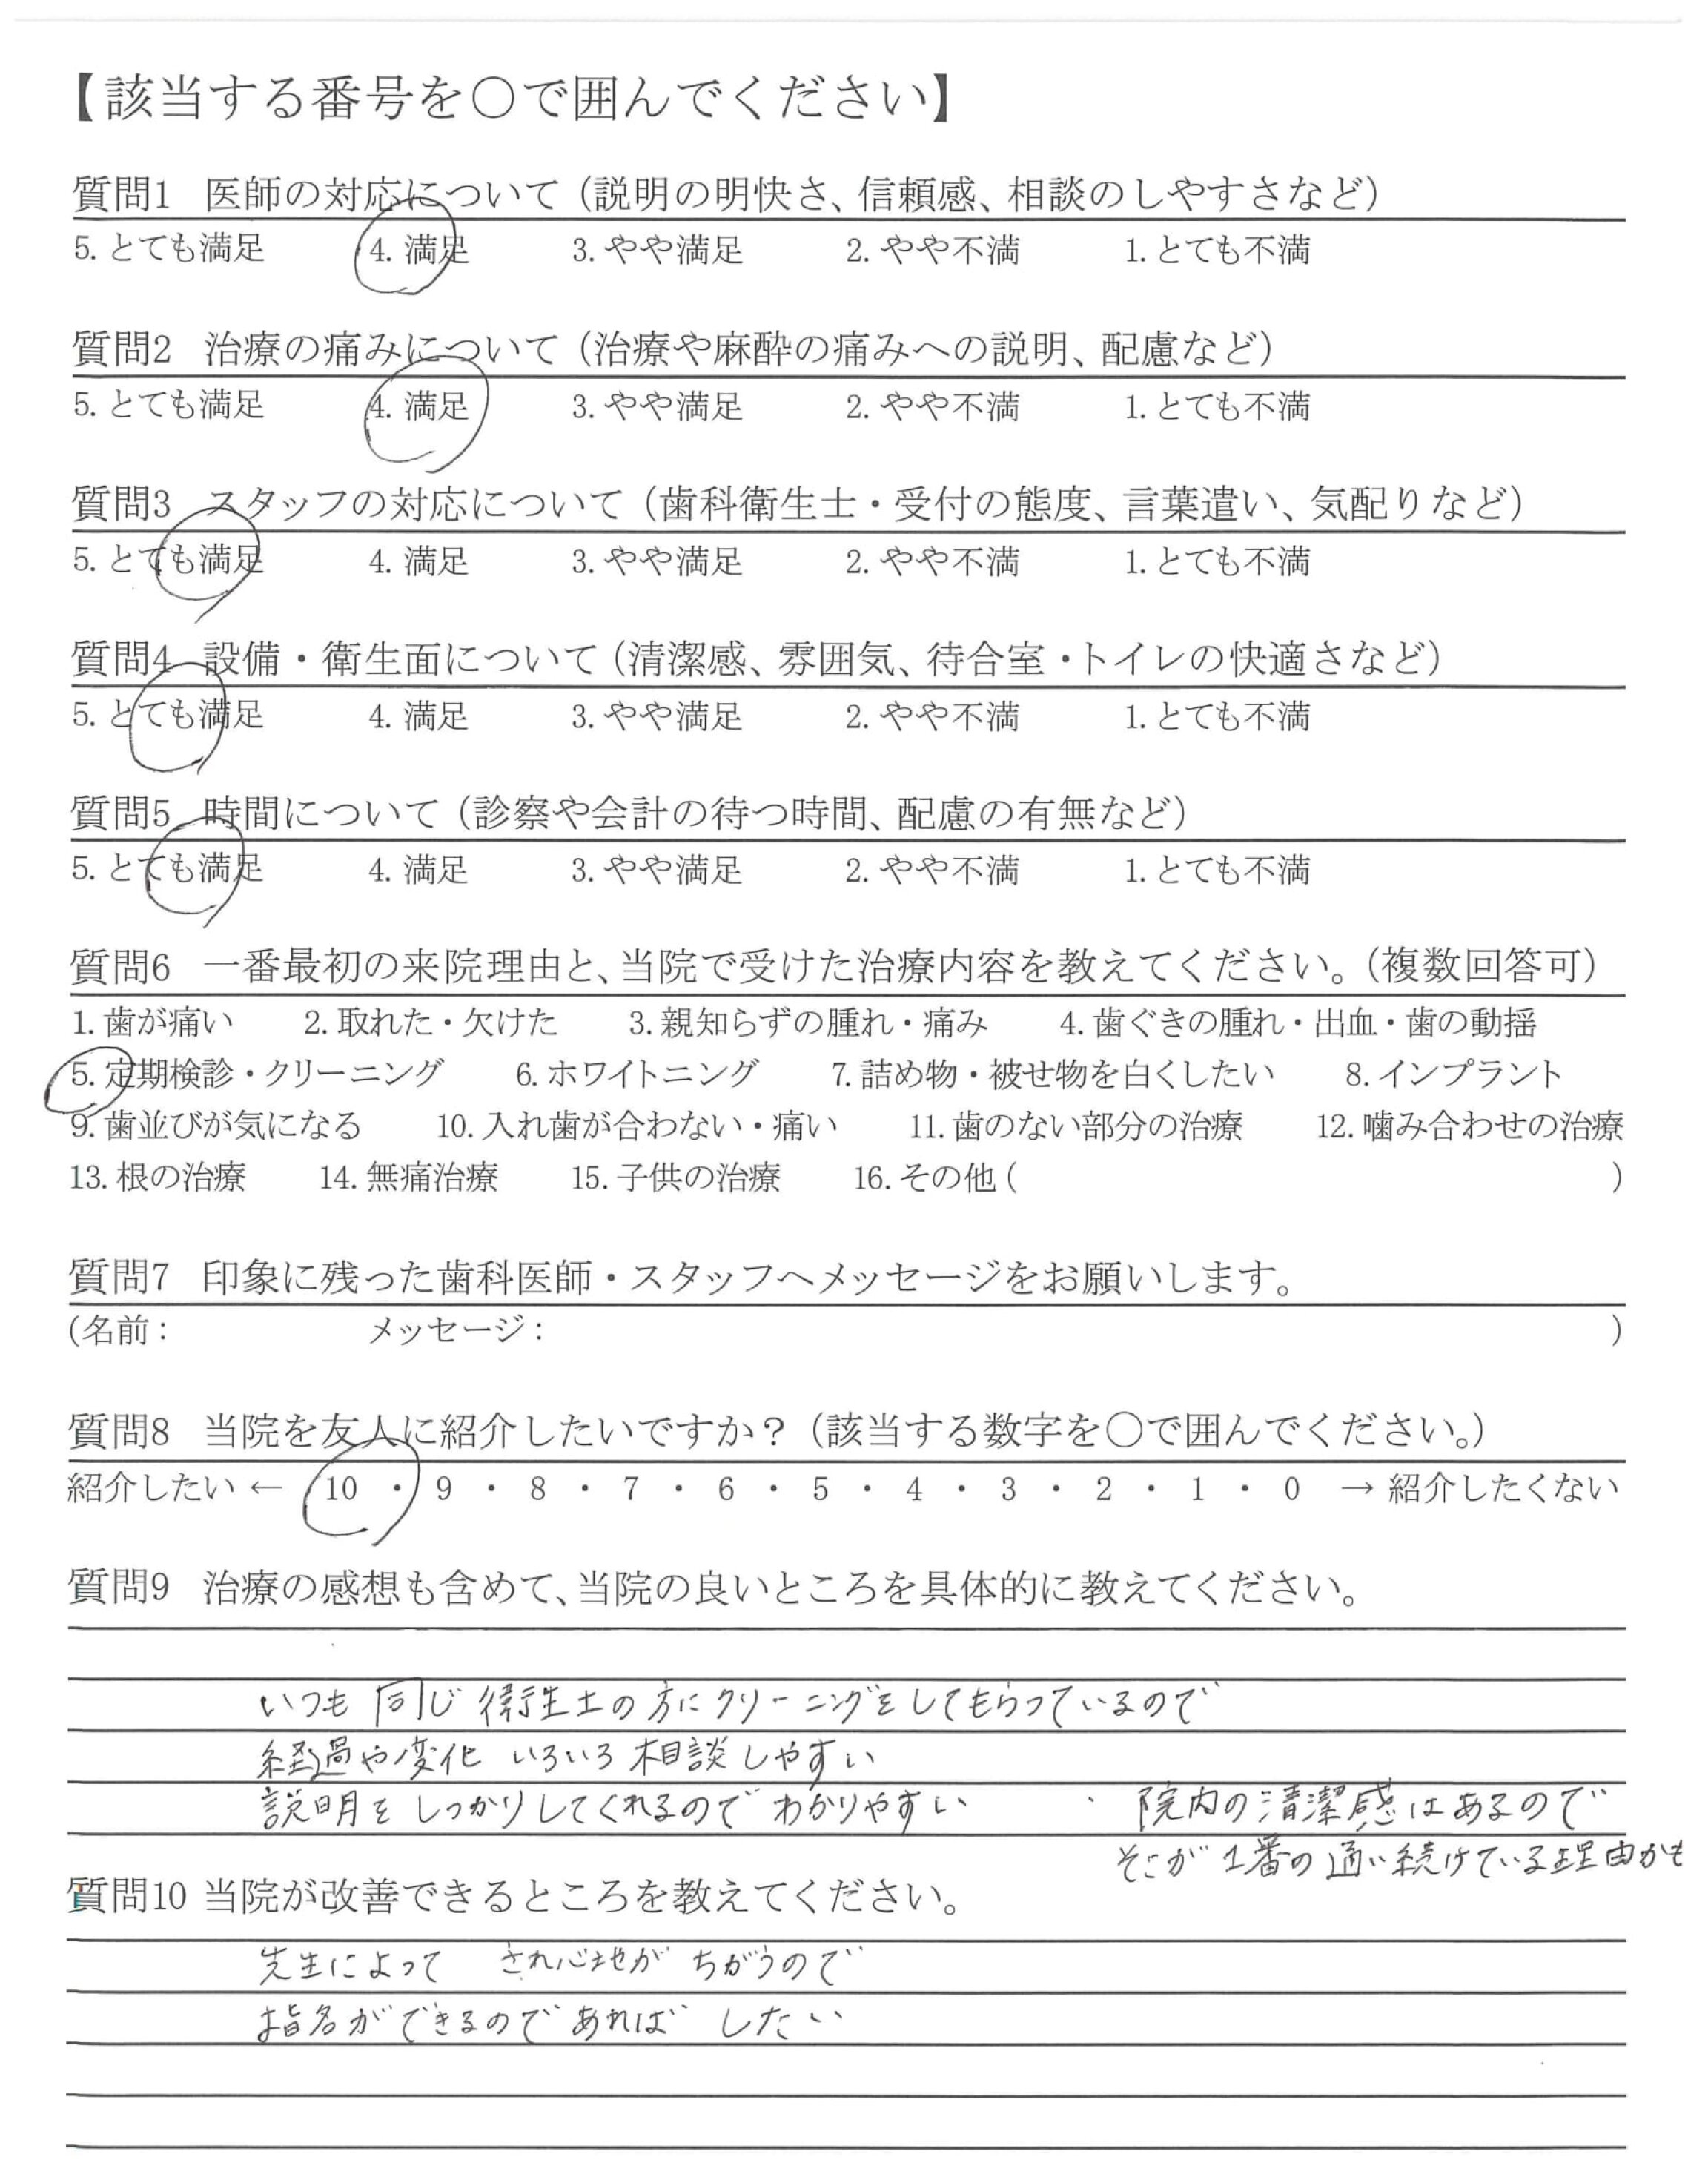 【該当する番号を〇で囲んでください】
質問1 医師の対応について（説明の明快さ、信頼感、相談のしやすさなど）
5. とても満足 4. 満足 3. やや満足 2. やや不満 1. とても不満
質問2 治療の痛みについて（治療や麻酔の痛みへの説明、配慮など）
5. とても満足 4. 満足 3. やや満足 2. やや不満 1. とても不満
質問3 スタッフの対応について（歯科衛生士・受付の態度、言葉遣い、気配りなど）
5. とても満足 4. 満足 3. やや満足 2. やや不満 1. とても不満
質問4 設備・衛生面について（清潔感、雰囲気、待合室・トイレの快適さなど）
5. とても満足 4. 満足 3. やや満足 2. やや不満 1. とても不満
質問5 時間について（診察や会計の待つ時間、配慮の有無など）
5. とても満足 4. 満足 3. やや満足 2. やや不満 1. とても不満
質問6 一番最初の来院理由と、当院で受けた治療内容を教えてください。（複数回答可）
1. 歯が痛い 2. 取れた・欠けた 3. 親知らずの腫れ・痛み 4. 歯ぐきの腫れ・出血・歯の動揺
5. 定期検診・クリーニング 6. ホワイトニング 7. 詰め物・被せ物を白くしたい 8. インプラント
9. 歯並びが気になる 10. 入れ歯が合わない・痛い 11. 歯のない部分の治療 12. 噛み合わせの治療
13. 根の治療 14. 無痛治療 15. 子供の治療 16. その他 ( )
質問7 印象に残った歯科医師・スタッフへメッセージをお願いします。
(名前： メッセージ： )
質問8 当院を友人に紹介したいですか？（該当する数字を〇で囲んでください。）
紹介したい ← 10 ・ 9 ・ 8 ・ 7 ・ 6 ・ 5 ・ 4 ・ 3 ・ 2 ・ 1 ・ 0 → 紹介したくない
質問9 治療の感想も含めて、当院の良いところを具体的に教えてください。
いつも同じ衛生士の方にクリーニングをしてもらっているので
経過や変化 いろいろ相談しやすい
説明をしっかりしてくれるので わかりやすい ・ 院内の清潔感はあるので
そこが1番の通い続けている理由かも
質問10 当院が改善できるところを教えてください。
先生によって され心地が ちがうので
指名ができるのであれば したい